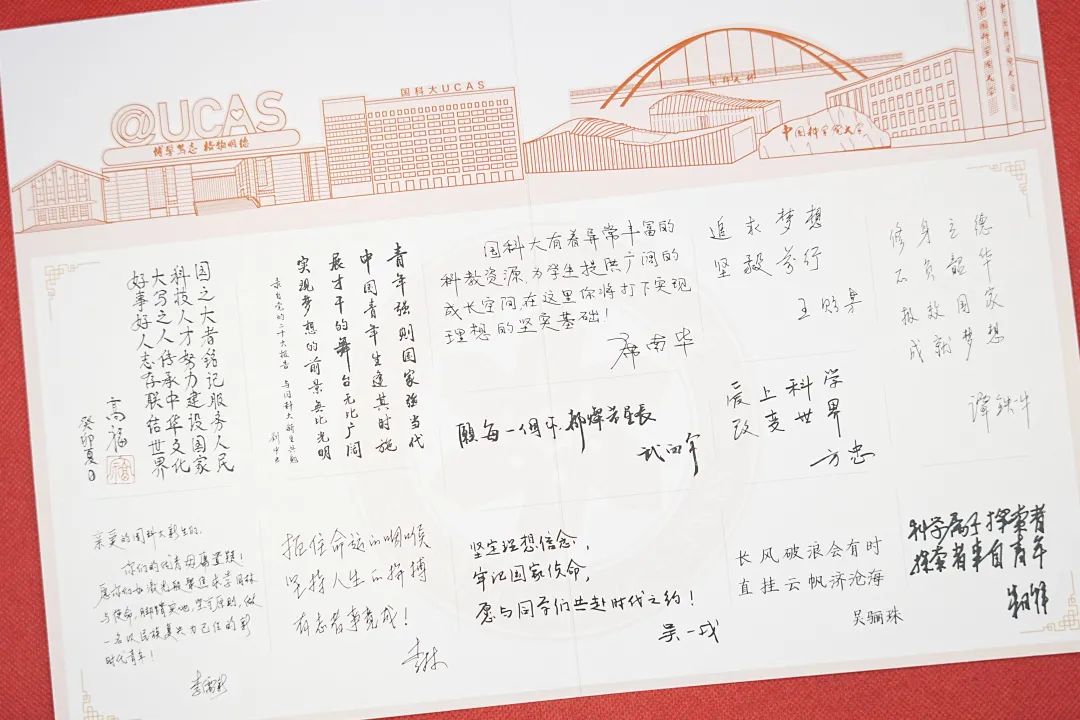 @UCAS
博学笃志 格物明德
国科大UCAS
中国科学院大学
国之大者铭记服务人民
科技人才努力建设国家
大写之人传承中华文化
好事好人志存联结世界
高福
癸卯夏日
青年强则国家强当代
中国青年生逢其时施
展才干的舞台无比广阔
实现梦想的前景无比光明
录自党的二十大报告 与国科大新生共勉
国科大有着异常丰富的
科教资源,为学生提供广阔的
成长空间,在这里你将打下实现
理想的坚实基础!
席南华
追求梦想
坚毅前行
王贻芳
修身立德
不负韶华
报效国家
成就梦想
谭铁牛
愿每一個你,都燦若星辰
武向平
爱上科学
改变世界
方忠
亲爱的国科大新生们,
你们的优秀毋庸置疑!
与使命,脚踏实地,坚守原则,做
一名以民族复兴为己任的新
时代青年!
扼住命运的咽喉
坚持人生的拼搏
有志者事竟成!
李林
坚定理想信念,
牢记国家使命,
愿与同学们共赴时代之约!
吴一戎
长风破浪会有时
直挂云帆济沧海
吴骊珠
科学属于探索者
探索者来自青年